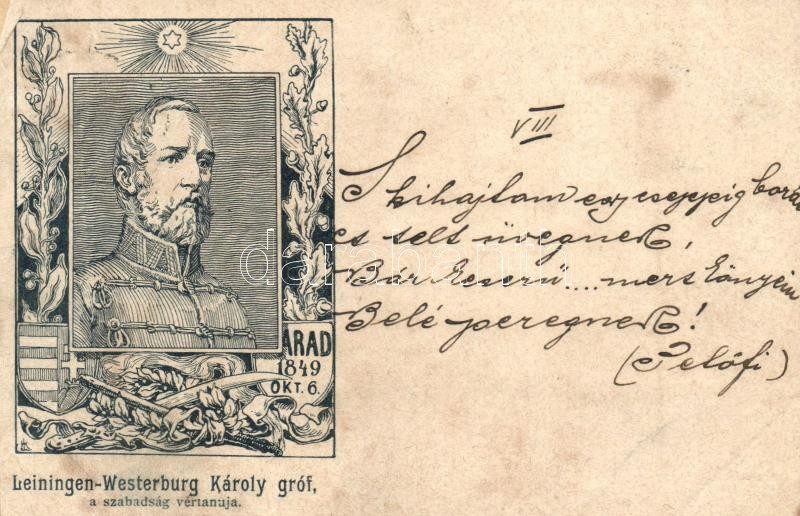 ARAD
1849
OKT. 6.
Leiningen-Westerburg Károly gróf,
a szabadság vértanuja.
VIII
S kihajtam egy cseppig borát
es telt üvegnek,
Bár keserű .... mert könyeim
Belé peregnek!
(Petőfi)
darabanth